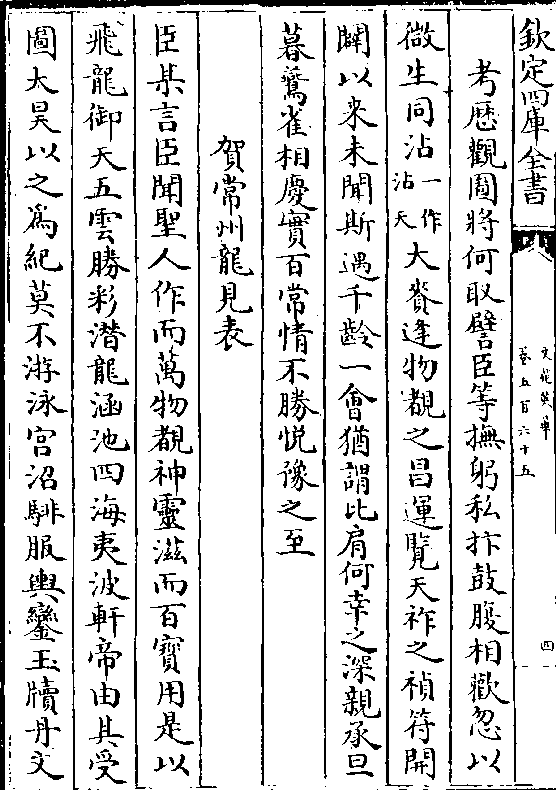 欽定四庫全書
文苑英華
卷五百六十五
四
考歷觀圖將何取譬臣等撫躬私抃鼓腹相歡忽以
微生同沾一作沾天大賚逢物覩之昌運覽天祚之禎符開
闢以来未聞斯遇千齡一會猶謂比肩何幸之深親承旦
暮鷰雀相慶實百常情不勝悦豫之至
賀常州龍見表
臣某言臣聞聖人作而萬物覩神靈滋而百寳用是以
飛龍御天五雲勝彩潜龍涵池四海夷波軒帝由其受
圖太昊以之為紀莫不游泳宫沼騑服輿鑾玉牘丹文